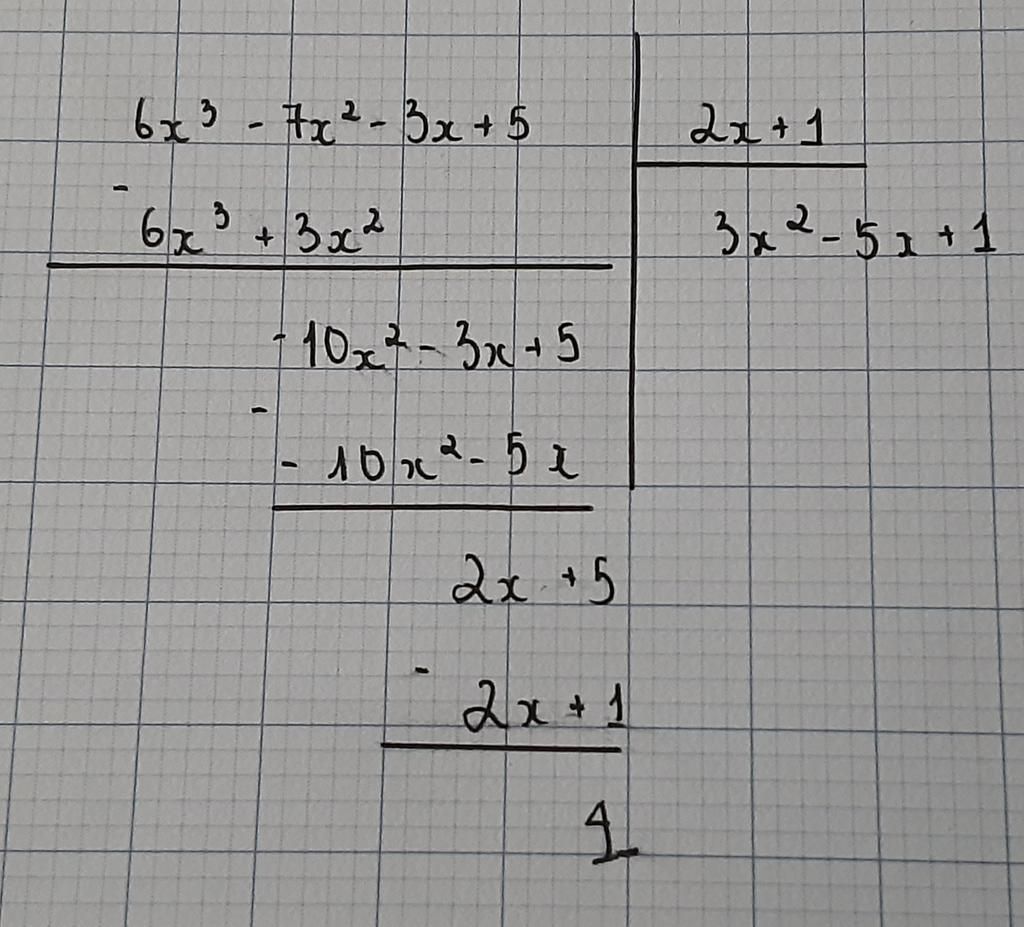 6x³ - 7x² - 3x + 5
2x + 1
-
6x³ + 3x²
3x² - 5x + 1
-10x² - 3x + 5
-
- 10x² - 5x
2x + 5
-
2x + 1